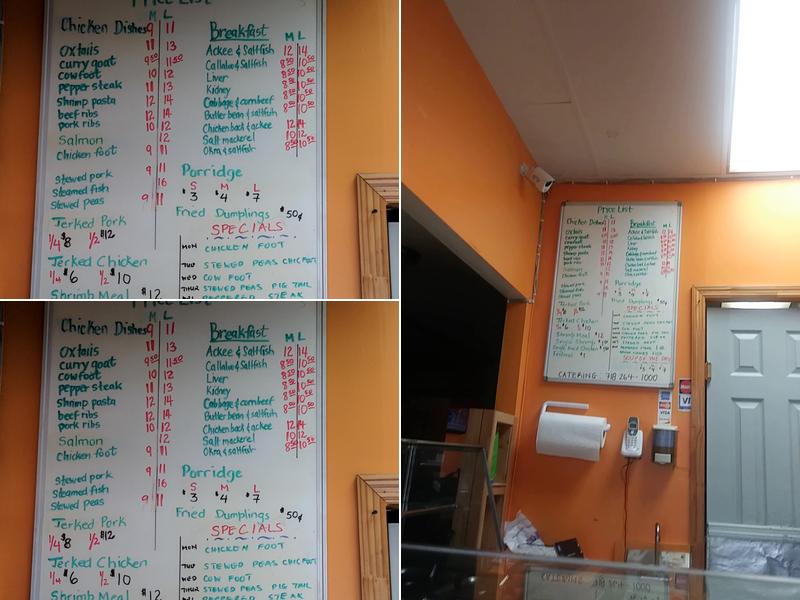 M L
Chicken Dishes 9 11
Oxtails 11 13
curry goat 9.50 11.50
cowfoot 10 12
pepper steak 11 13
Shrimp pasta 12 14
beef ribs 12 14
pork ribs 10 12
Salmon 12
Chicken foot 9 11
stewed pork 9 11
steamed fish 16
Stewed peas 9 11
Jerked Pork
1/4 $8 1/2 $12
Jerked Chicken
1/4 $6 1/2 $10
Shrimp Meal $12
Breakfast M L
Ackee & Saltfish 12 14
Callaloo & Saltfish 8.50 10.50
Liver 8.50 10.50
Kidney 8.50 10.50
Cabbage & cornbeef 8.50 10.50
Butter bean & saltfish 8.50 10.50
Chicken back & ackee 12 14
Salt mackerel 10 12
Okra & saltfish 8.50 10.50
Porridge
S M L
$3 $4 $7
Fried Dumplings $50¢
SPECIALS
MON CHICKEN FOOT
TUE STEWED PEAS CHIC FOOT
WED COW FOOT
THUR STEWED PEAS PIG TAIL
PEPPERED STEAK
Price List
M L
Chicken Dishes 9 11
Oxtails
curry goat
cowfoot
pepper steak
Shrimp pasta
beef ribs
pork ribs
Salmon
Chicken foot
Breakfast M L
Porridge
Fried Dumplings 50¢
SPECIALS
Jerked Pork
Jerked Chicken
$6 $10
Shrimp Meal $12
Festival $1
SOUP OF THE DAY
CATERING 718 264-1000
VISA
PRICE LIST
M L
Chicken Dishes 9 11
Oxtails 11 13
curry goat 9.50 11.50
cowfoot 10 12
pepper steak 11 13
Shrimp pasta 12 14
beef ribs 12 14
pork ribs 10 12
Salmon 12
Chicken foot 9 11
stewed pork 9 11
steamed fish 16
Stewed peas 9 11
Jerked Pork
1/4 $8 1/2 $12
Jerked Chicken
1/4 $6 1/2 $10
Shrimp Meal $12
Breakfast M L
Ackee & Saltfish 12 14
Callaloo & Saltfish 8.50 10.50
Liver 8.50 10.50
Kidney 8.50 10.50
Cabbage & cornbeef 8.50 10.50
Butter bean & saltfish 8.50 10.50
Chicken back & ackee 12 14
Salt mackerel 10 12
Okra & saltfish 8.50 10.50
Porridge
S M L
$3 $4 $7
Fried Dumplings $50¢
SPECIALS
MON CHICKEN FOOT
TUE STEWED PEAS CHIC FOOT
WED COW FOOT
THUR STEWED PEAS PIG TAIL
PEPPERED STEAK